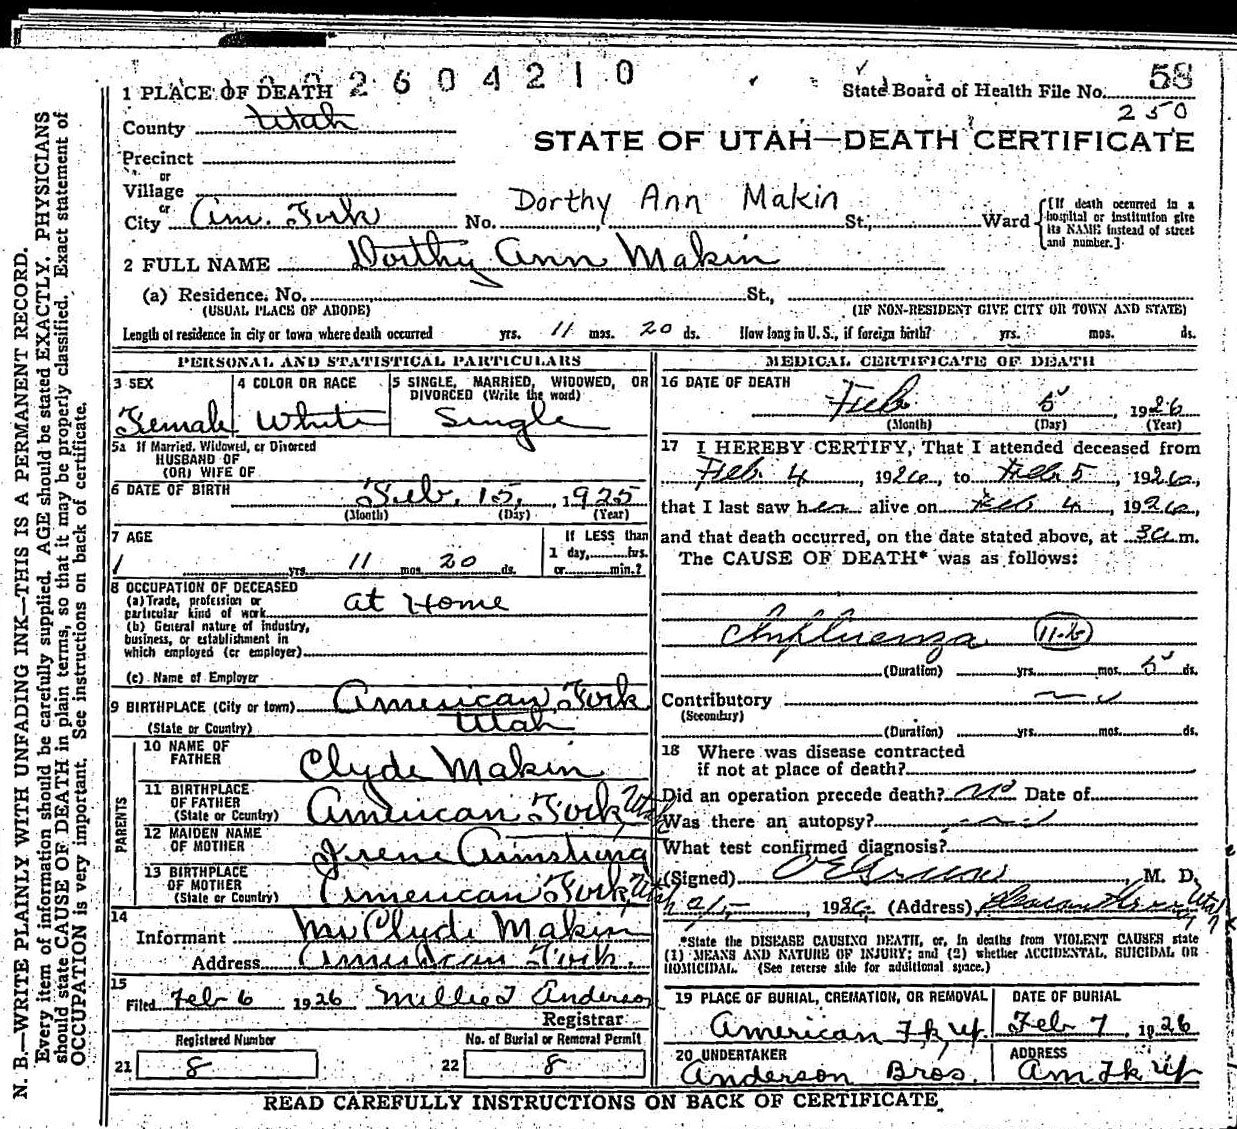 002604210
1 PLACE OF DEATH
State Board of Health File No. 58
250
County Utah
STATE OF UTAH—DEATH CERTIFICATE
Precinct
or
Village
or
City Am. Fork No. Dorthy Ann Makin St., Ward [If death occurred in a hospital or institution give its NAME instead of street and number.]
2 FULL NAME Dorthy Ann Makin
(a) Residence. No. St.,
(USUAL PLACE OF ABODE) (IF NON-RESIDENT GIVE CITY OR TOWN AND STATE)
Length of residence in city or town where death occurred yrs. 11 mos. 20 ds. How long in U.S., if foreign birth? yrs. mos. ds.
PERSONAL AND STATISTICAL PARTICULARS
3 SEX 4 COLOR OR RACE 5 SINGLE, MARRIED, WIDOWED, OR
DIVORCED (Write the word)
Female White Single
5a If Married, Widowed, or Divorced
HUSBAND OF
(OR) WIFE OF
6 DATE OF BIRTH Feb. 15, 1925
(Month) (Day) (Year)
7 AGE If LESS than
1 day,......hrs.
/ yrs. 11 mos. 20 ds. or......min.?
8 OCCUPATION OF DECEASED
(a) Trade, profession or
particular kind of work at Home
(b) General nature of industry,
business, or establishment in
which employed (or employer)
(c) Name of Employer
9 BIRTHPLACE (City or town) American Fork
(State or Country) Utah
PARENTS
10 NAME OF
FATHER Clyde Makin
11 BIRTHPLACE
OF FATHER
(State or Country) American Fork Utah
12 MAIDEN NAME
OF MOTHER Irene Armstrong
13 BIRTHPLACE
OF MOTHER
(State or Country) American Fork, Utah
14
Informant Mr Clyde Makin
Address American Fork.
15
Filed Feb 6 1926 Millie T Anderson
Registrar
Registered Number No. of Burial or Removal Permit
21 8 22 8
MEDICAL CERTIFICATE OF DEATH
16 DATE OF DEATH
Feb 5, 1926
(Month) (Day) (Year)
17 I HEREBY CERTIFY, That I attended deceased from
Feb. 4, 1926, to Feb 5, 1926,
that I last saw her alive on Feb 4, 1926,
and that death occurred, on the date stated above, at 3a m.
The CAUSE OF DEATH* was as follows:
Influenza 11-b
(Duration) yrs. mos. 5 ds.
Contributory
(Secondary)
(Duration) yrs. mos. ds.
18 Where was disease contracted
if not at place of death?
Did an operation precede death? no Date of
Was there an autopsy?
What test confirmed diagnosis?
(Signed) M. D.
2/5, 1926 (Address) Pleasant Grove Utah
*State the DISEASE CAUSING DEATH, or, in deaths from VIOLENT CAUSES state
(1) MEANS AND NATURE OF INJURY; and (2) whether ACCIDENTAL, SUICIDAL OR
HOMICIDAL. (See reverse side for additional space.)
19 PLACE OF BURIAL, CREMATION, OR REMOVAL DATE OF BURIAL
American Fk Feb 7, 1926
20 UNDERTAKER ADDRESS
Anderson Bros. Am Fk
READ CAREFULLY INSTRUCTIONS ON BACK OF CERTIFICATE
N. B.—WRITE PLAINLY WITH UNFADING INK—THIS IS A PERMANENT RECORD.
Every item of information should be carefully supplied. AGE should be stated EXACTLY. PHYSICIANS
should state CAUSE OF DEATH in plain terms, so that it may be properly classified. Exact statement of
OCCUPATION is very important. See instructions on back of certificate.